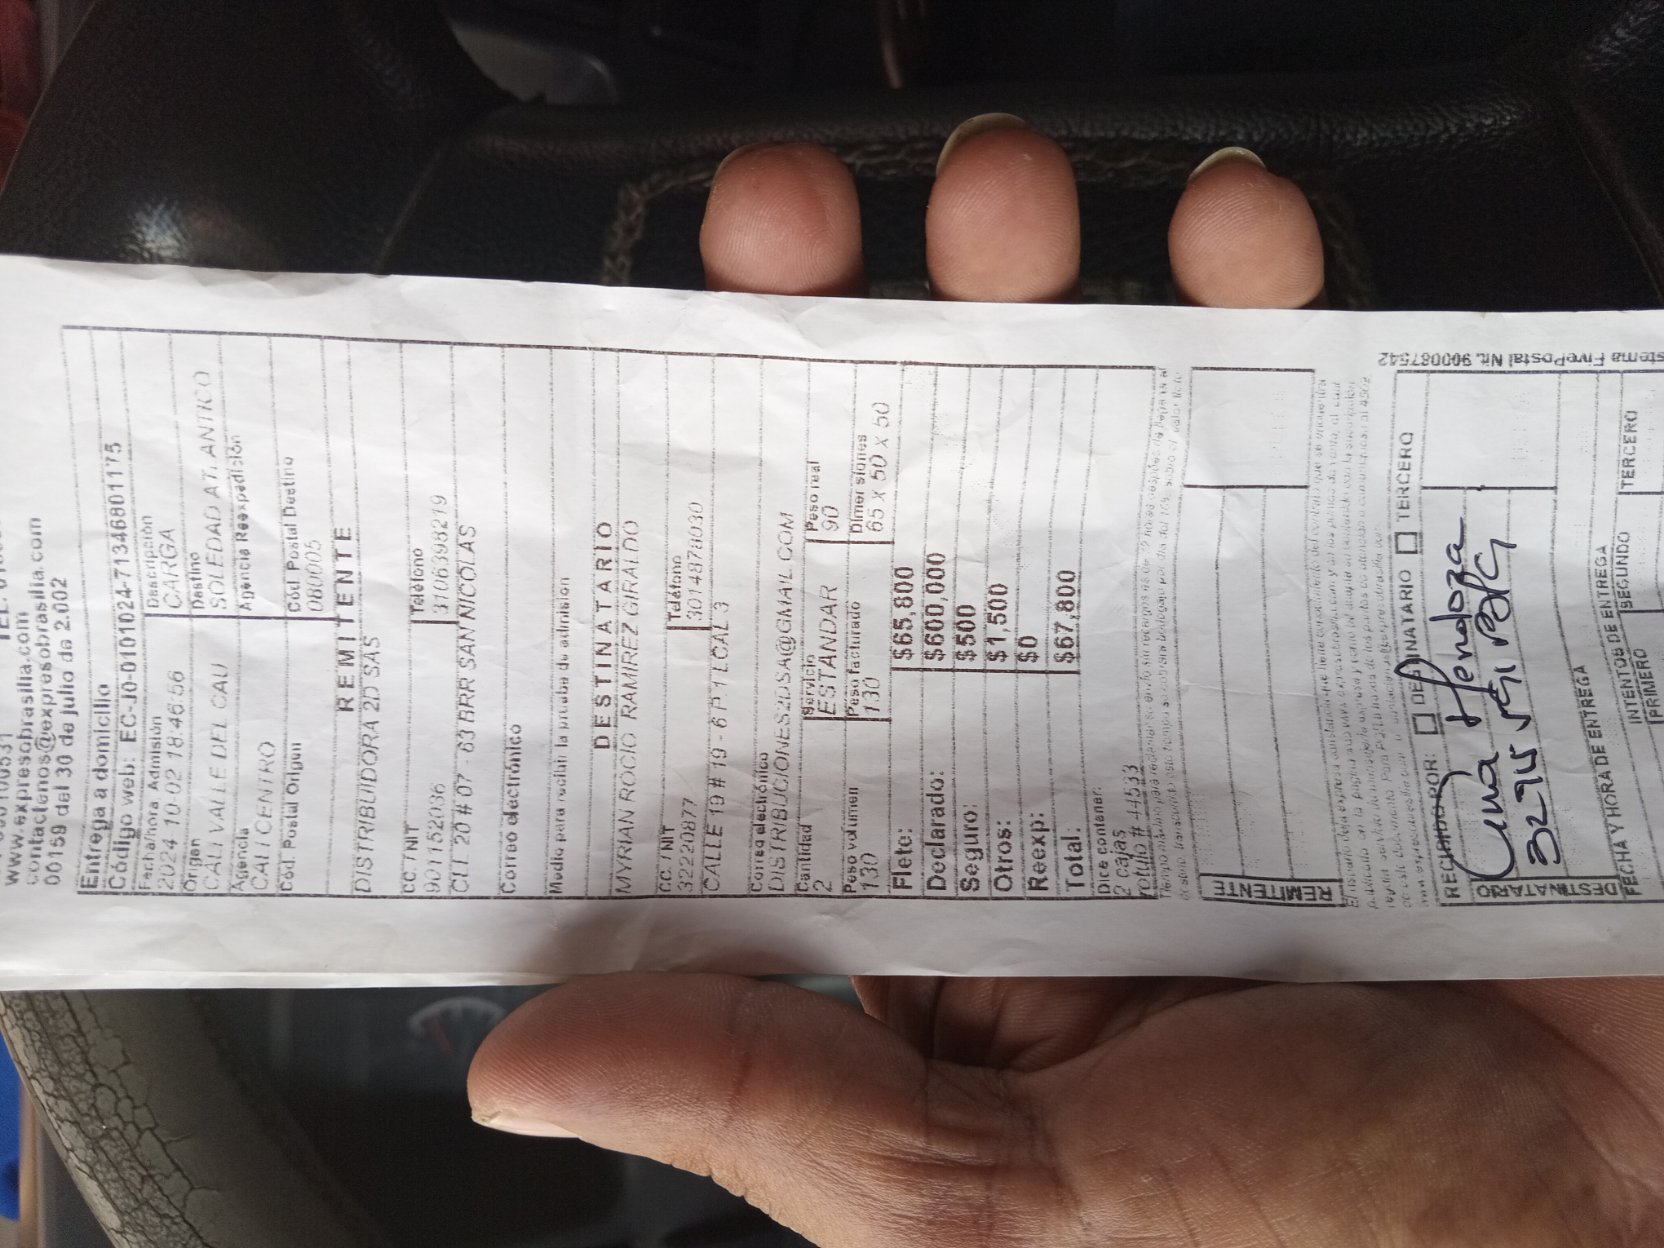 www.expresobrasilia.com
contactenos@expresobrasilia.com
00159 del 30 de julio de 2.002
Entrega a domicilio
Código web: EC-J0-0101024-71346801175
Fecha/hora Admisión
2024 10-02 18:46:56
Descripción
CARGA
Origen
CALI VALLE DEL CAU
Destino
SOLEDAD ATLANTICO
Agencia
CALI CENTRO
Agencia Reexpedición
Cód. Postal Origen
Cód Postal Destino
080005
REMITENTE
DISTRIBUIDORA 2D SAS
CC. / NIT
901152036
Teléfono
3106398219
CLL 20 # 07 - 63 BRR SAN NICOLAS
Correo electrónico
Medio para recibir la prueba de admisión
DESTINATARIO
MYRIAN ROCIO RAMIREZ GIRALDO
CC. / NIT
32220877
Teléfono
3014878030
CALLE 19 # 19 - 6 P 1 LCAL 3
Correo electrónico
DISTRIBUCIONES2DSA@GMAIL.COM
Cantidad
2
Servicio
ESTANDAR
Peso real
90
Peso volumen
130
Peso facturado
130
Dimensiones
65 X 50 X 50
Flete: $65,800
Declarado: $600,000
Seguro: $500
Otros: $1,500
Reexp: $0
Total: $67,800
Dice contener:
2 cajas
rotulo # 44533
REMITENTE
RECIBIDO POR: DESTINATARIO TERCERO
Mendoza
DESTINATARIO
FECHA Y HORA DE ENTREGA
INTENTOS DE ENTREGA
PRIMERO SEGUNDO TERCERO
FivePostal Nit. 900087542